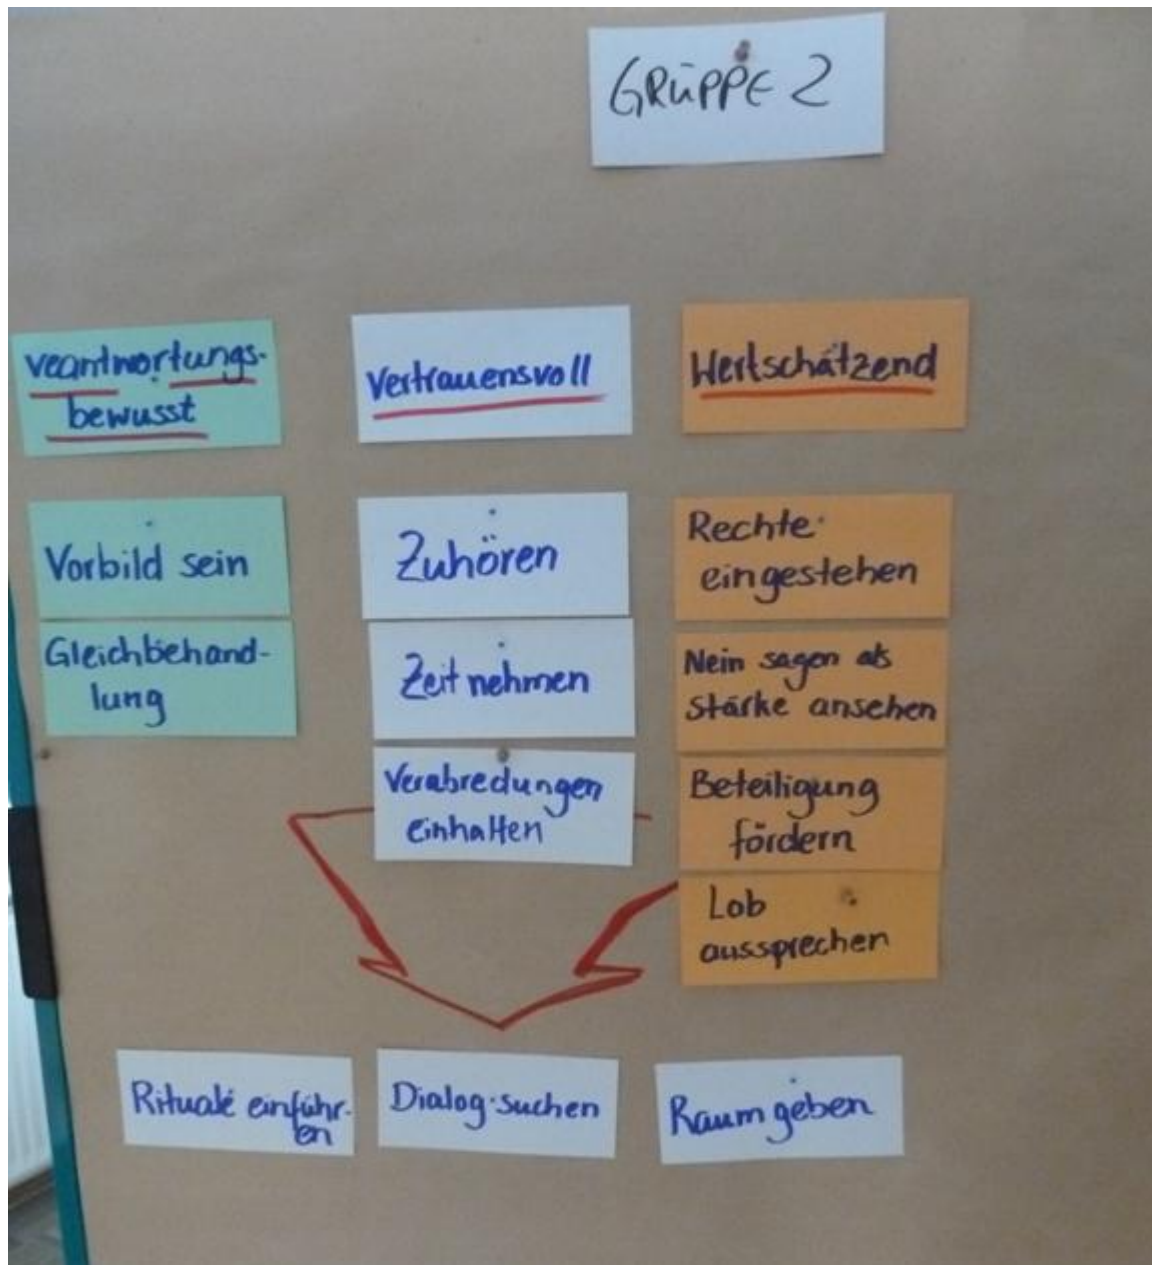 GRUPPE 2
veantwortungs-
bewusst
Vorbild sein
Gleichbehand-
lung
Vertrauensvoll
Zuhören
Zeit nehmen
Verabredungen
einhalten
Wertschätzend
Rechte
eingestehen
Nein sagen als
stärke ansehen
Beteiligung
fördern
Lob
aussprechen
Rituale einführ-
en
Dialog suchen
Raum geben